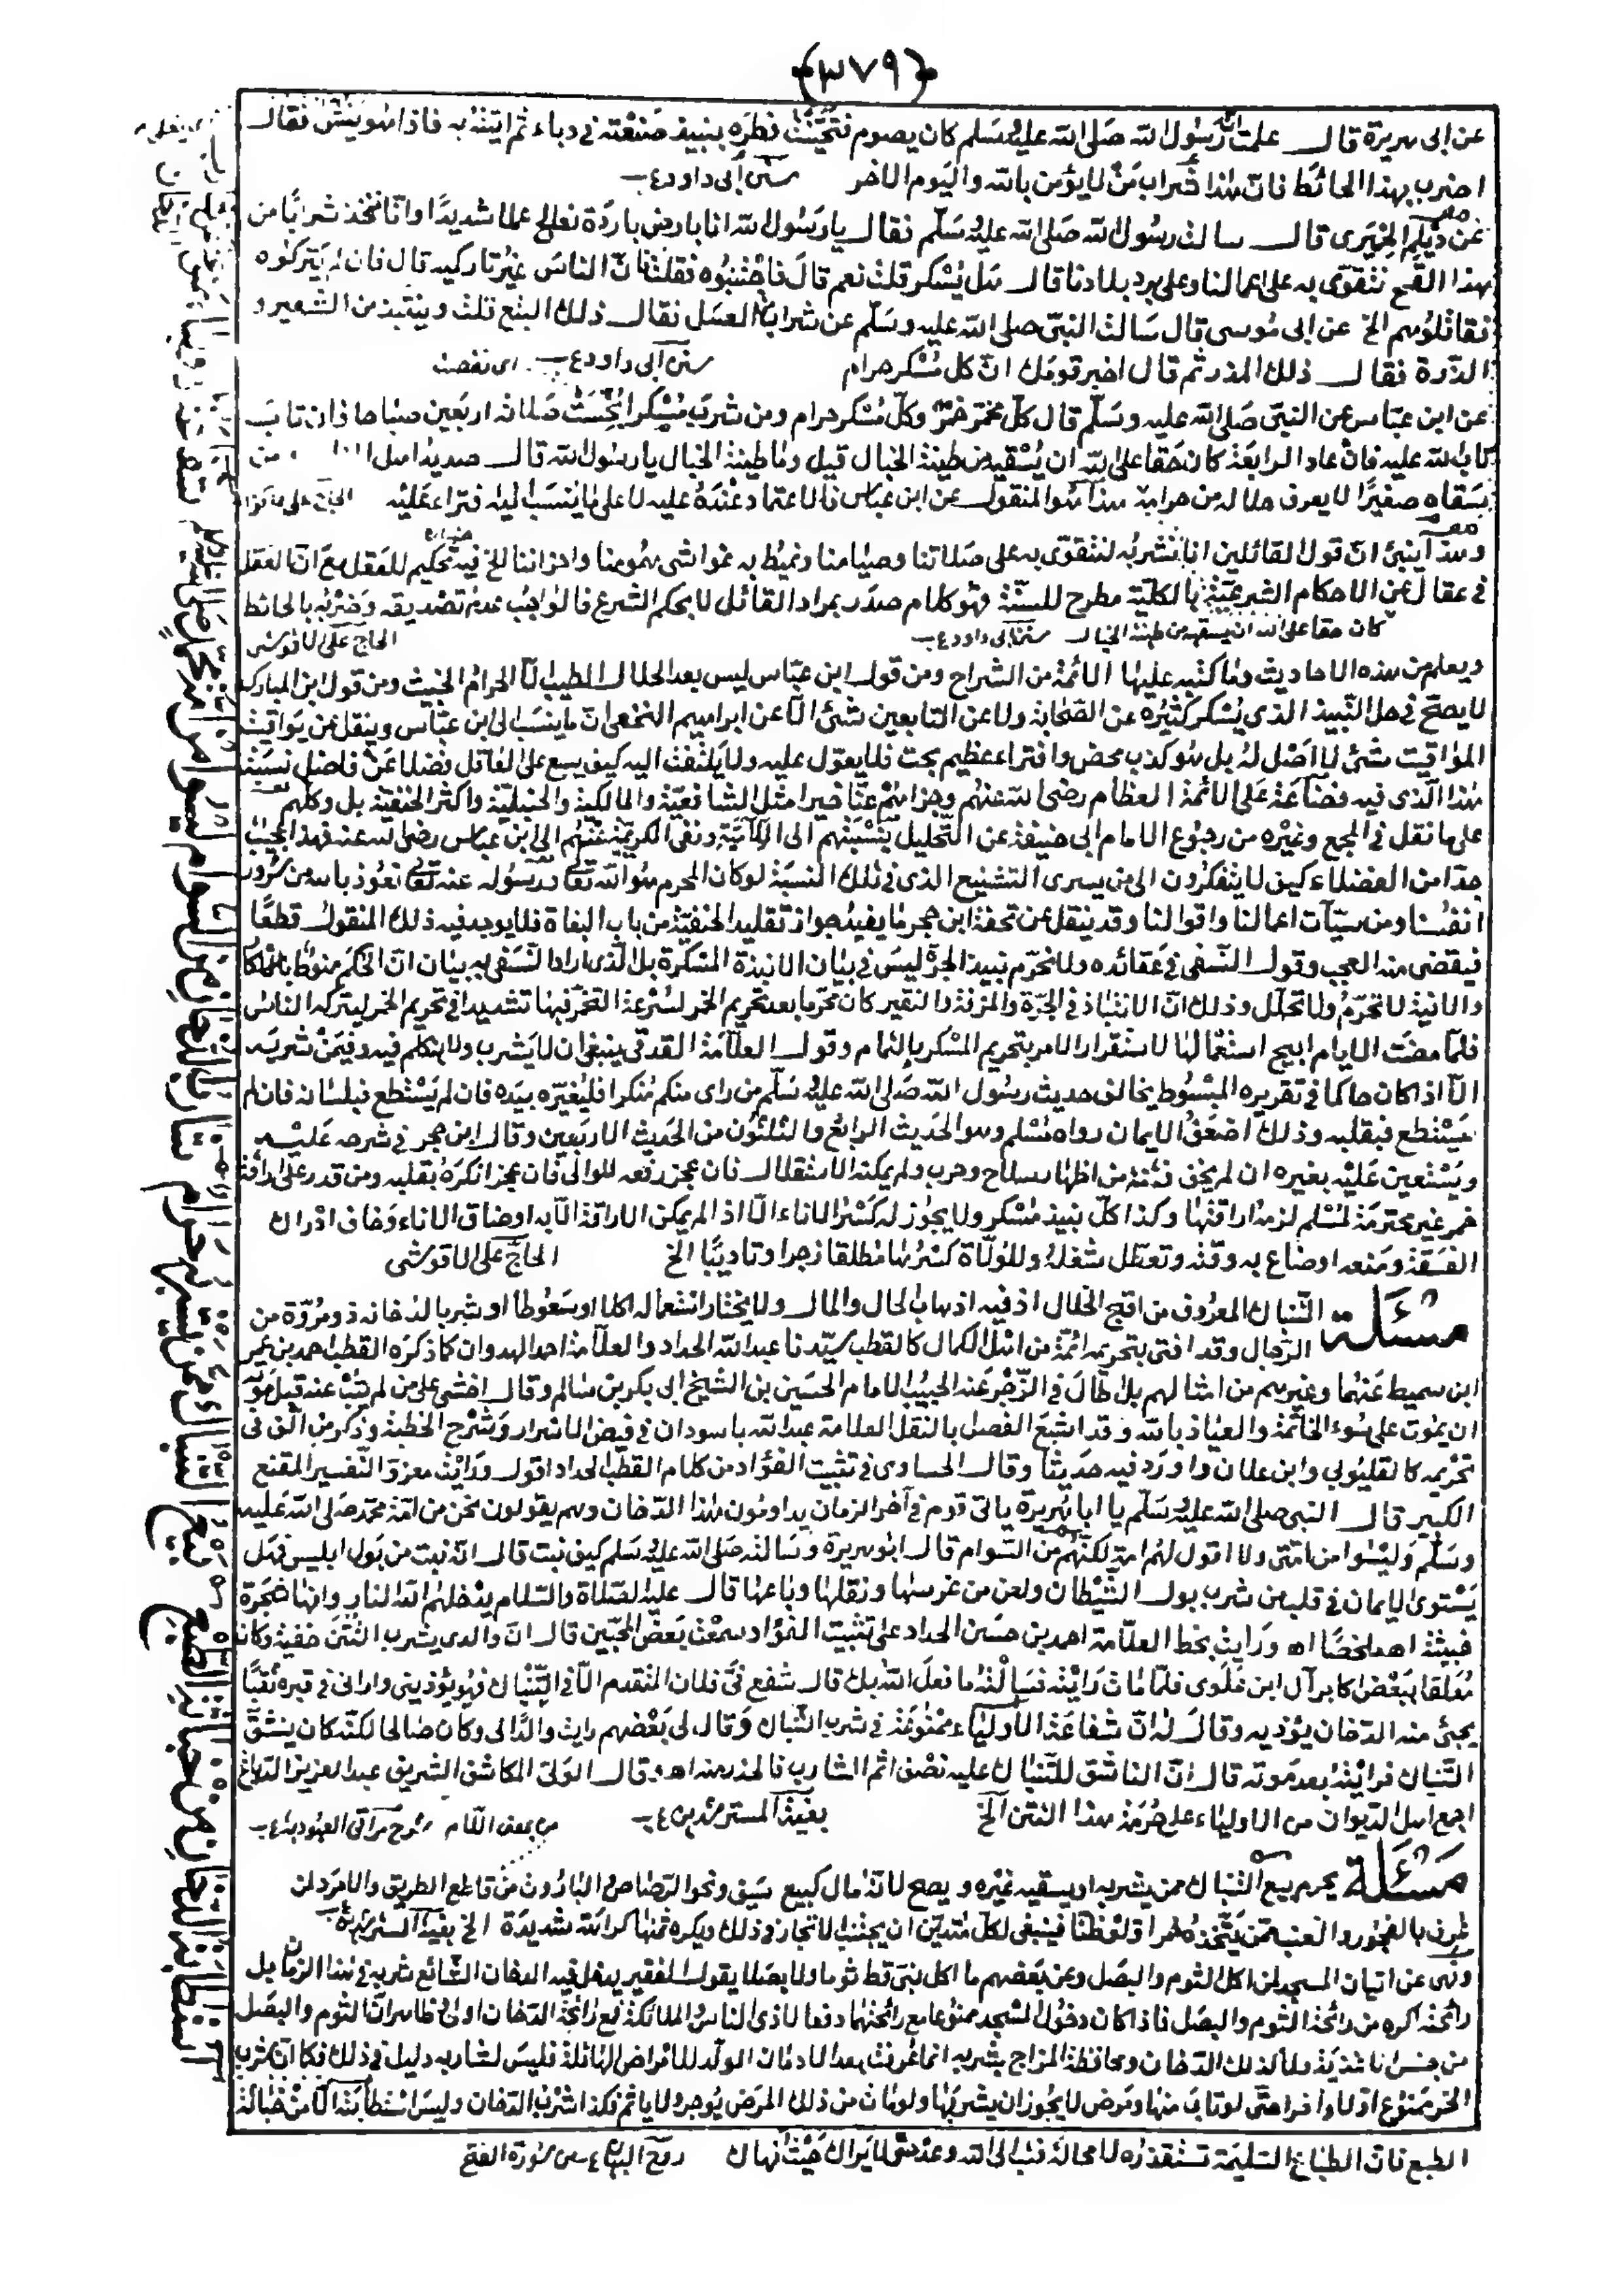 ﴿٣٧٩﴾
عن ابى هريرة قال علمت ان رسول الله صلى الله عليه وسلم كان يصوم فتحينت فطره بنبيذ صنعته فى دباء ثم اتيته به فاذا هو ينش فقال
اضرب بهذا الحائط فان هذا شراب من لا يؤمن بالله واليوم الاخر سنن ابى داود
عن ديلم الحميرى قال سالت رسول الله صلى الله عليه وسلم فقال يا رسول الله انا بارض باردة نعالج عملا شديدا وانا نتخذ شرابا من
هذا القمح نتقوى به على اعمالنا وعلى برد بلادنا قال هل يسكر قلت نعم قال فاجتنبوه فقلت ان الناس غير تاركيه قال فان لم يتركوه
فقاتلوهم الخ عن ابى موسى قال سالت النبى صلى الله عليه وسلم عن شراب العسل فقال ذلك البتع قلت وينتبذ من الشعير و
الذرة فقال ذلك المذر ثم قال اخبر قومك ان كل مسكر حرام سنن ابى داود اى نقصت
عن ابن عباس عن النبى صلى الله عليه وسلم قال كل مخمر خمر وكل مسكر حرام ومن شرب مسكرا بخست صلاته اربعين صباحا فان تاب
تاب الله عليه فان عاد الرابعة كان حقا على الله ان يسقيه من طينة الخبال قيل وما طينة الخبال يا رسول الله قال صديد اهل النار ومن
سقاه صغيرا لا يعرف حلاله من حرامه هذا هو المنقول عن ابن عباس فالاعتماد عنده عليه لا على ما ينسب اليه افتراء عليه الحاج على
وهذا ينبئ ان قول القائلين انا نشربه لنتقوى به على صلاتنا وصيامنا ونميط به غواشى همومنا واحزاننا الخ فيه تحكيم للعقل مع ان العقل
فى عقال عن الاحكام الشرعية بالكلية مطرح للسنة فهو كلام صدر بمراد القائل لا بحكم الشرع فالواجب عدم تصديقه وضربه بالحائط
كان حقا على الله ان يسقيه من طينة الخبال سنن ابى داود الحاج على الاقوشى
ويعلم من هذه الاحاديث وما كتبه عليها الائمة من الشراح ومن قول ابن عباس ليس بعد الحلال الطيب الا الحرام الخبيث ومن قول ابن المبارك
لا يصح فى حل النبيذ الذى يسكر كثيره عن الصحابة ولا عن التابعين شئ الا عن ابراهيم النخعى ان ما ينسب الى ابن عباس وينقل عن يواقيت
المواقيت شئ لا اصل له بل هو كذب محض وافتراء عظيم بحت فلا يعول عليه ولا يلتفت اليه كيف يسع على العاقل فضلا عن فاضل نسبة
هذا الذى فيه فضاعة على الائمة العظام رضى الله عنهم وجزاهم عنا خيرا مثل الشافعية والمالكية والحنبلية واكثر الحنفية بل وكلهم
على ما نقل فى المجمع وغيره من رجوع الامام ابى حنيفة عن التحليل بنسبتهم الى ونفى الكريمة عنهم الى ابن عباس رضى الله عنه فهذا العجيب
جدا من الفضلاء كيف لا يتفكرون الى من يسرى التشنيع الذى فى تلك النسبة لو كان المحرم هو الله تعالى ورسوله عنه تعالى نعوذ بالله من شرور
انفسنا ومن سيئات اعمالنا واقوالنا وقد ينقل عن تحفة ابن حجر ما يفيد جواز تقليد الحنفية من باب البغاة فلا يوجد فيه ذلك المنقول قطعا
فيقضى منه العجب وقول النسفى فى عقائده ولا نحرم نبيذ الجر ليس فى بيان الانبذة المسكرة بل الذى اراد النسفى به بيان ان الحكم منوط بالمسكر
والانبذ لا تحرم ولا تحلل وذلك ان الانتباذ فى الجرة والمزفتة والنقير كان محرما بعد تحريم الخمر لسرعة التخمر فيها تشديدا فى تحريم الخمر ليتركه الناس
فلما مضت الايام ابيح استعمالها لاستقرار الامر بتحريم المسكر بالتمام وقول العلامة القدقى ينبغى ان لا يشرب ولا يتكلم فيه وفيمن شربه
الا اذا كان حاكما فى تقريره المبسوط يخالف حديث رسول الله صلى الله عليه وسلم من راى منكم منكرا فليغيره بيده فان لم يستطع فبلسانه فان لم
يستطع فبقلبه وذلك اضعف الايمان رواه مسلم وهو الحديث الرابع والثلثون من الحديث الاربعين وقال ابن حجر فى شرحه عليه
ويستعين عليه بغيره ان لم يخف فتنة من اظهار سلاح وحرب ولم يمكنه الاستقلال فان عجز رفعه للوالى فان عجز انكره بقلبه ومن قدر على اراقة
خمر غير محترمة لمسلم لزمه اراقتها وكذا كل نبيذ مسكر ولا يجوز له كسر الاناء الا اذا لم يمكن الاراقة الا به او ضاق الاناء وخاف ادراك
الفسقة ومنعه او ضاع به وقته وتعطل شغله وللولاة كسرها مطلقا زجرا وتاديبا الخ الحاج على الاقوشى
مسئلة التنباك المعروف من اقبح الخلال اذ فيه اذهاب الحال والمال ولا يختار استعماله اكلا او سعوطا او شربا لدخانه ذو مروءة من
الرجال وقد افتى بتحريمه ائمة من اهل الكمال كالقطب سيدنا عبد الله الحداد والعلامة احمد الهدوان كما ذكره القطب احمد بن عمر
ابن سميط عنهما وغيرهم من امثالهم بل طال فى الزجر عنه الحبيب الامام الحسين بن الشيخ ابى بكر بن سالم وقال اخشى على من لم يتب عنه قبل موته
ان يموت على سوء الخاتمة والعياذ بالله وقد اشبع الفصل بالنقل العلامة عبد الله باسودان فى فيض الاسرار وشرح الخطبة وذكر من الف فى
تحريمه كالقليوبى وابن علان واورد فيه حديثا وقال الحساوى فى تثبيت الفؤاد من كلام القطب الحداد اقول ورايته معزوا لتفسير المقنع
الكبير قال النبى صلى الله عليه وسلم يا ابا هريرة ياتى قوم فى آخر الزمان يداومون هذا الدخان وهم يقولون نحن من امة محمد صلى الله عليه
وسلم وليسوا من امتى ولا اقول لهم امة لكنهم من السوام قال ابو هريرة وسالته صلى الله عليه وسلم كيف نبت قال انه نبت من بول ابليس فهل
يستوى الايمان فى قلب من شرب بول الشيطان ولعن من غرسها ونقلها وباعها قال عليه الصلاة والسلام يدخلهم الله النار وانها شجرة
خبيثة اهـ ملخصا اهـ ورايت بخط العلامة احمد بن حسن الحداد على تثبيت الفؤاد سمعت بعض المحبين قال ان والدى يشرب التتن خفية وكان
متعلقا ببعض اكابر آل ابن علوى فلما مات رايته فسالته ما فعل الله بك قال شفع فى فلان المتقدم الا فى التنباك فهو يؤذينى وارانى فى قبره ثقبا
يجئ منه الدخان يؤذيه وقال له ان شفاعة الاولياء ممنوعة فى شرب التنباك وقال لى بعضهم رايت والدى وكان صالحا لكنه كان ينشق
التنباك فرايته بعد موته قال ان الناشق للتنباك عليه نصف اثم الشارب فالحذر منه اهـ وقال الولى المكاشف الشريف عبد العزيز الدباغ
اجمع اهل الديوان من الاولياء على حرمة هذا التتن الخ بغية المسترشدين من بعض الكلام شرح مراقى العبودية
مسئلة يحرم بيع التنباك ممن يشربه او يسقيه غيره ويصح لانه مال كبيع سيف ونحو الرصاص والبارود من قاطع الطريق والامرد لمن
عرف بالفجور والعنب ممن يتخذه خمرا ولو ظنا فينبغى لكل متدين ان يجتنب الاتجار فى ذلك ويكره ثمنها كراهة شديدة الخ بغية المسترشدين
ونهى عن اتيان المسجد لمن اكل الثوم والبصل وعن بعضهم ما اكل نبى قط ثوما ولا بصلا يقول الفقير يدخل فيه الدخان الشائع شربه فى هذا الزمان بل
رائحته اكره من رائحة الثوم والبصل فاذا كان دخول المسجد ممنوعا مع رائحتهما دفعا لاذى الناس والملائكة فمع رائحة الدخان اولى ظاهر ان الثوم والبصل
من جنس الاغذية ولا كذلك الدخان ومحافظة المزاج بشربه انما عرفت بعد الادمان المولد للامراض الهائلة فليس لشاربه دليل فى ذلك فكما ان شرب
الخمر ممنوع اولا وآخرا حتى لو تاب منها ومرض لا يجوز ان يشربها ولو مات من ذلك المرض يوجر ولا ياثم فكذا شرب الدخان وليس استطابته الا من خباثة
الطبع فان الطباع السليمة تستقذره لا محالة فتب الى الله وعد حتى لا يراك حيث نهاك روح البيان من سورة الفتح